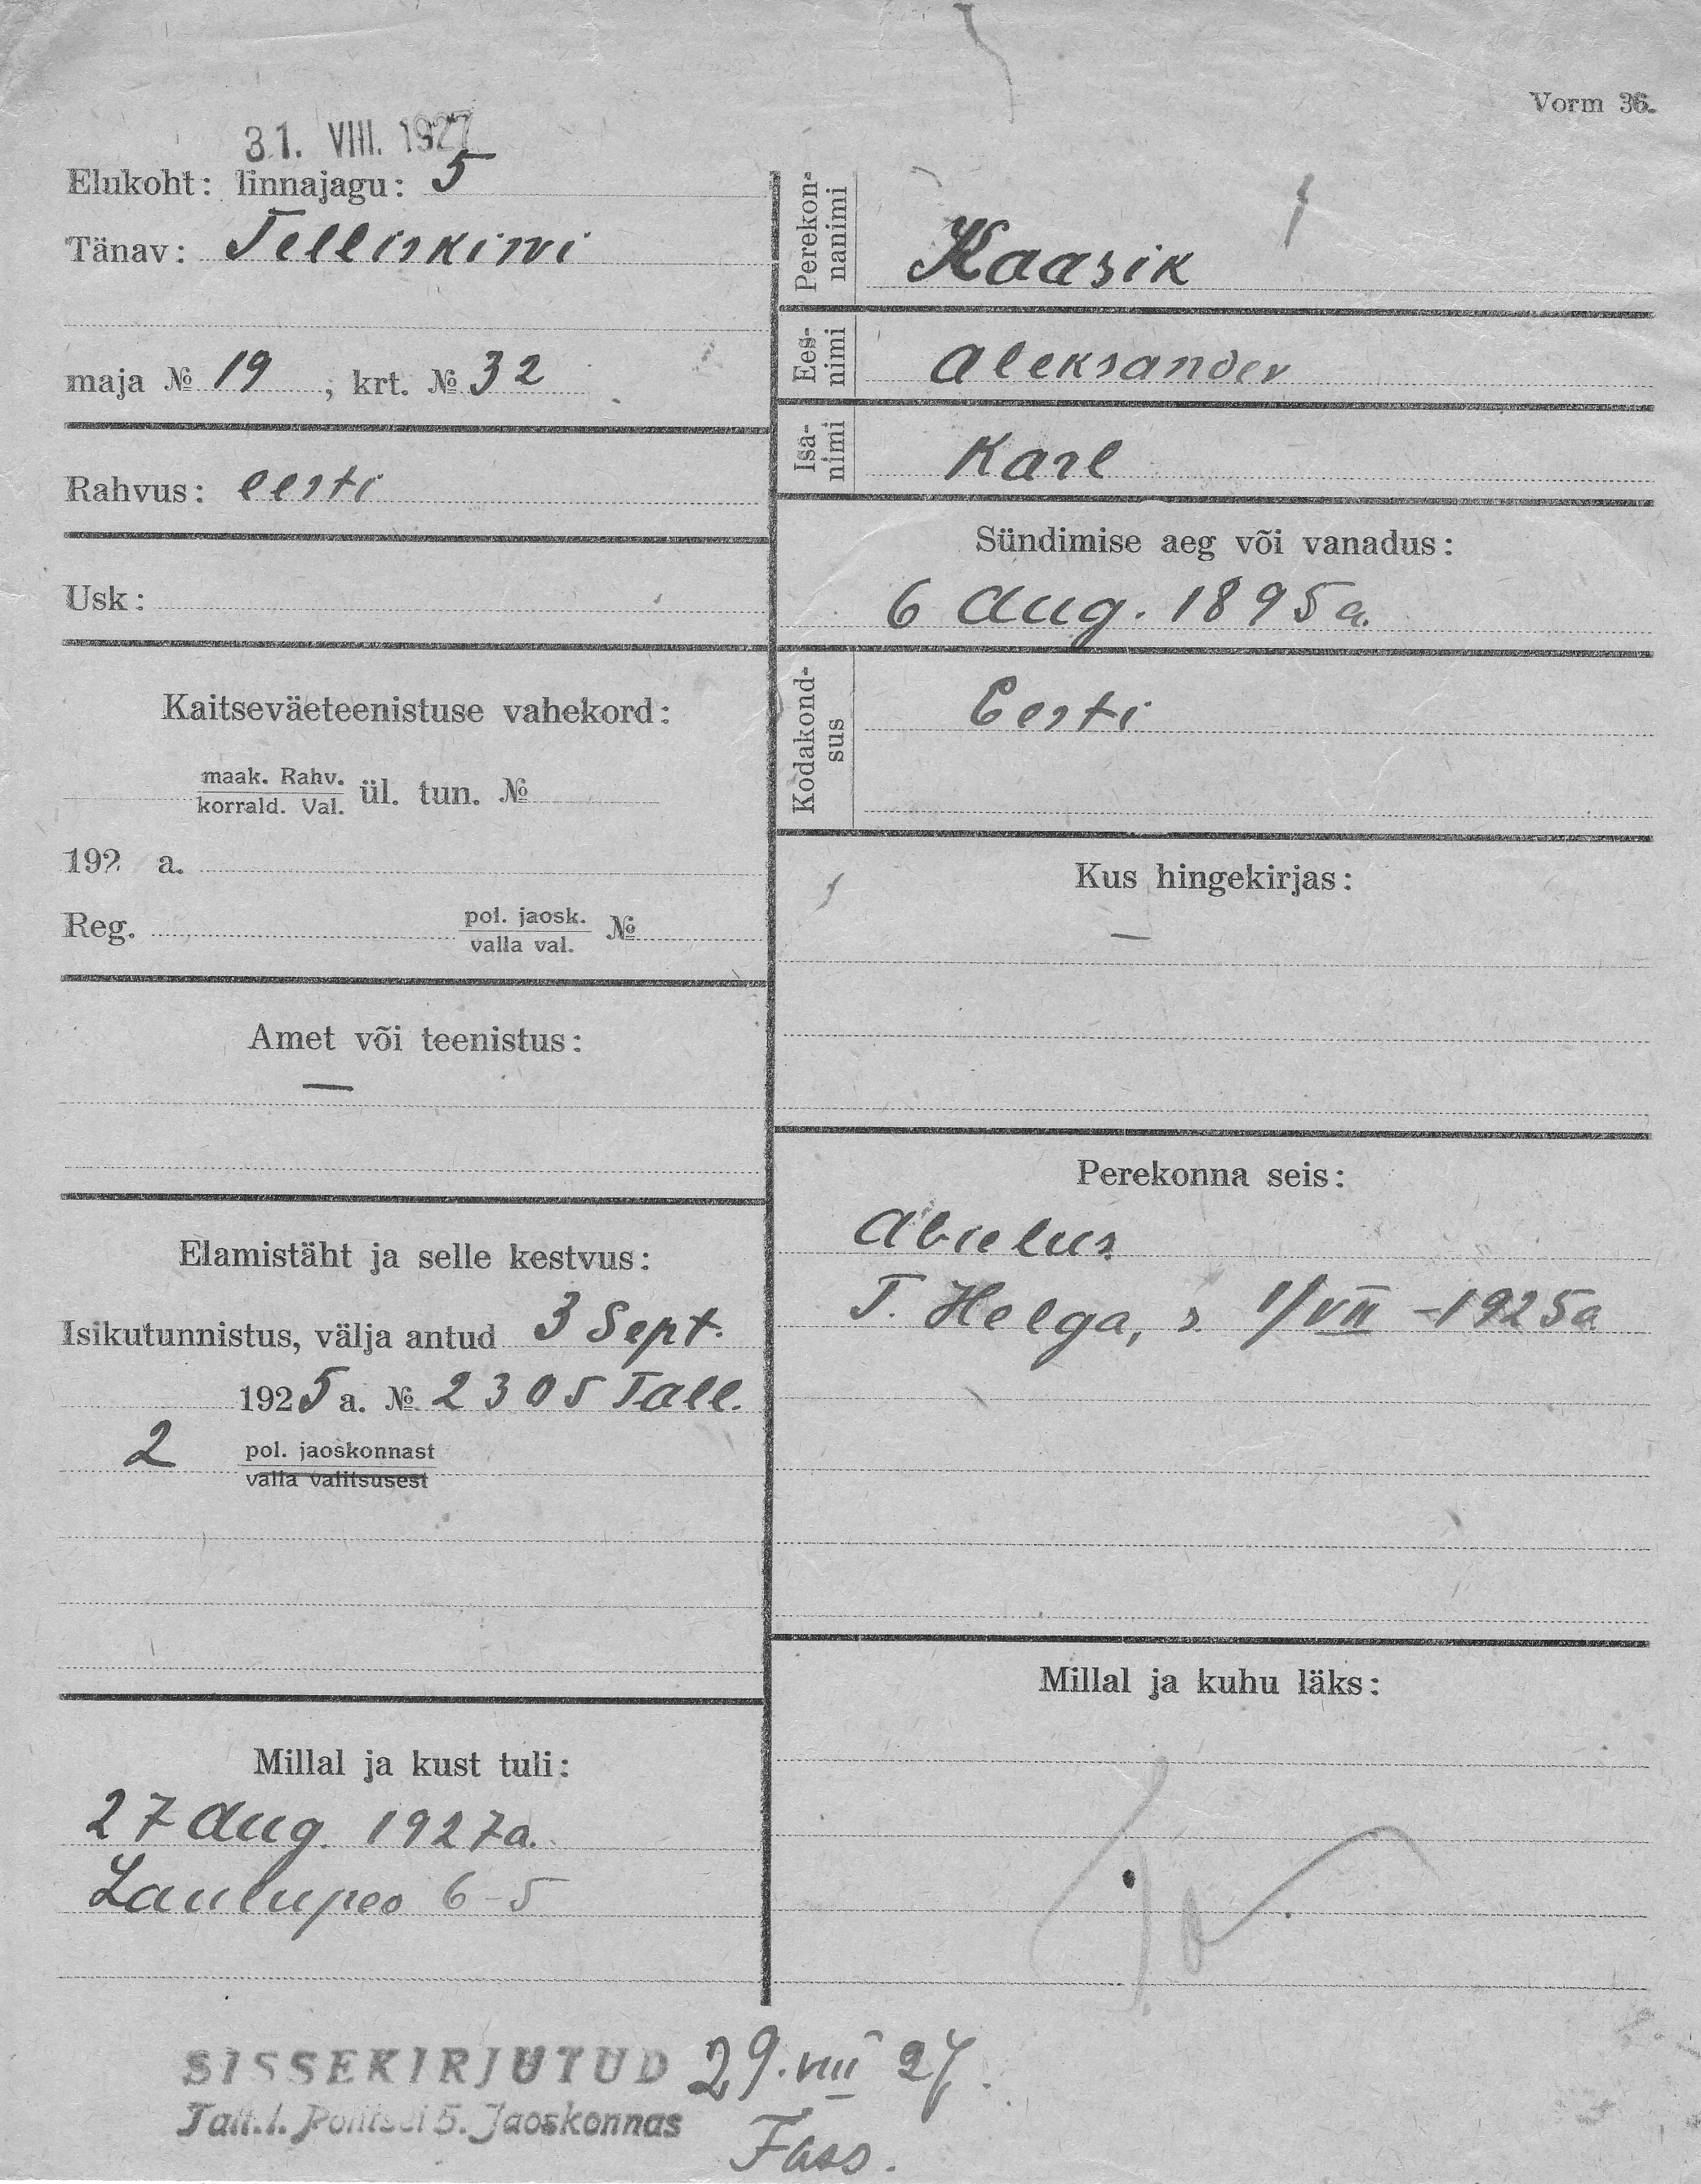 Vorm 36.
31. VIII. 1927
Elukoht: linnajagu: 5
Tänav: Telliskivi
maja № 19, krt. № 32
Rahvus: eesti
Usk:
Kaitseväeteenistuse vahekord:
maak. Rahv.
korrald. Val. ül. tun. №
192 a.
Reg. pol. jaosk.
valla val. №
Amet või teenistus:
—
Elamistäht ja selle kestvus:
Isikutunnistus, välja antud 3 Sept.
1925 a. № 2305 Tall.
2 pol. jaoskonnast
valla valitsusest
Millal ja kust tuli:
27 Aug. 1927a.
Laulupeo 6-5
Perekon-
nanimi Kaasik
Ees-
nimi Aleksander
Isa-
nimi Karl
Sündimise aeg või vanadus:
6 Aug. 1895a.
Kodakond-
sus Eesti
Kus hingekirjas:
—
Perekonna seis:
Abielus
T. Helga, s. 1/VII -1925a
Millal ja kuhu läks:
SISSEKIRJUTUD 29.VIII 27.
Tall.l. Politsei 5. Jaoskonnas
Fass.